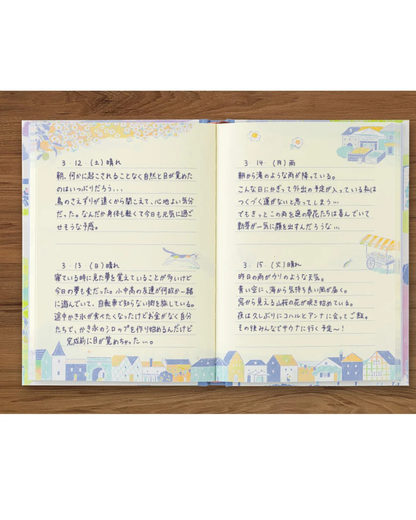 3 12 (土) 晴れ
朝、何かに起こされることなく自然と目が覚めた
のはいつぶりだろう...
鳥のさえずりが遠くから聞こえて、心地よい気分
だった。なんだか身体も軽くて今日も元気に過ご
せそうな予感。
3 13 (日) 晴れ
寝ている時に見た夢を覚えていることが多いけど
今日の夢も変だった。小中高の友達が何故か一緒
に遊んでいて、自転車で知らない街を旅している。
途中かき氷が食べたくなったけどお金がなく自分
たちで、かき氷のシロップを作り始めるんだけど
完成前に目が覚めちゃった...。
3 14 (月) 雨
朝から滝のような雨が降っている。
こんな日にかぎって外出の予定が入っている私は
つくづく運がないと思ってしまう...
でもきっとこの雨を庭の草花たちは喜んでいて
新芽が一気に顔を出すんだろうな...
3 15 (火) 晴れ
昨日の雨がウソのような天気。
青い空に、海から気持ち良い風が届く。
窓から見える山桜の花が咲き始めている。
夜は久しぶりにコハルとアンナに会ってご飯。
その後みんなでサウナに行く予定〜!